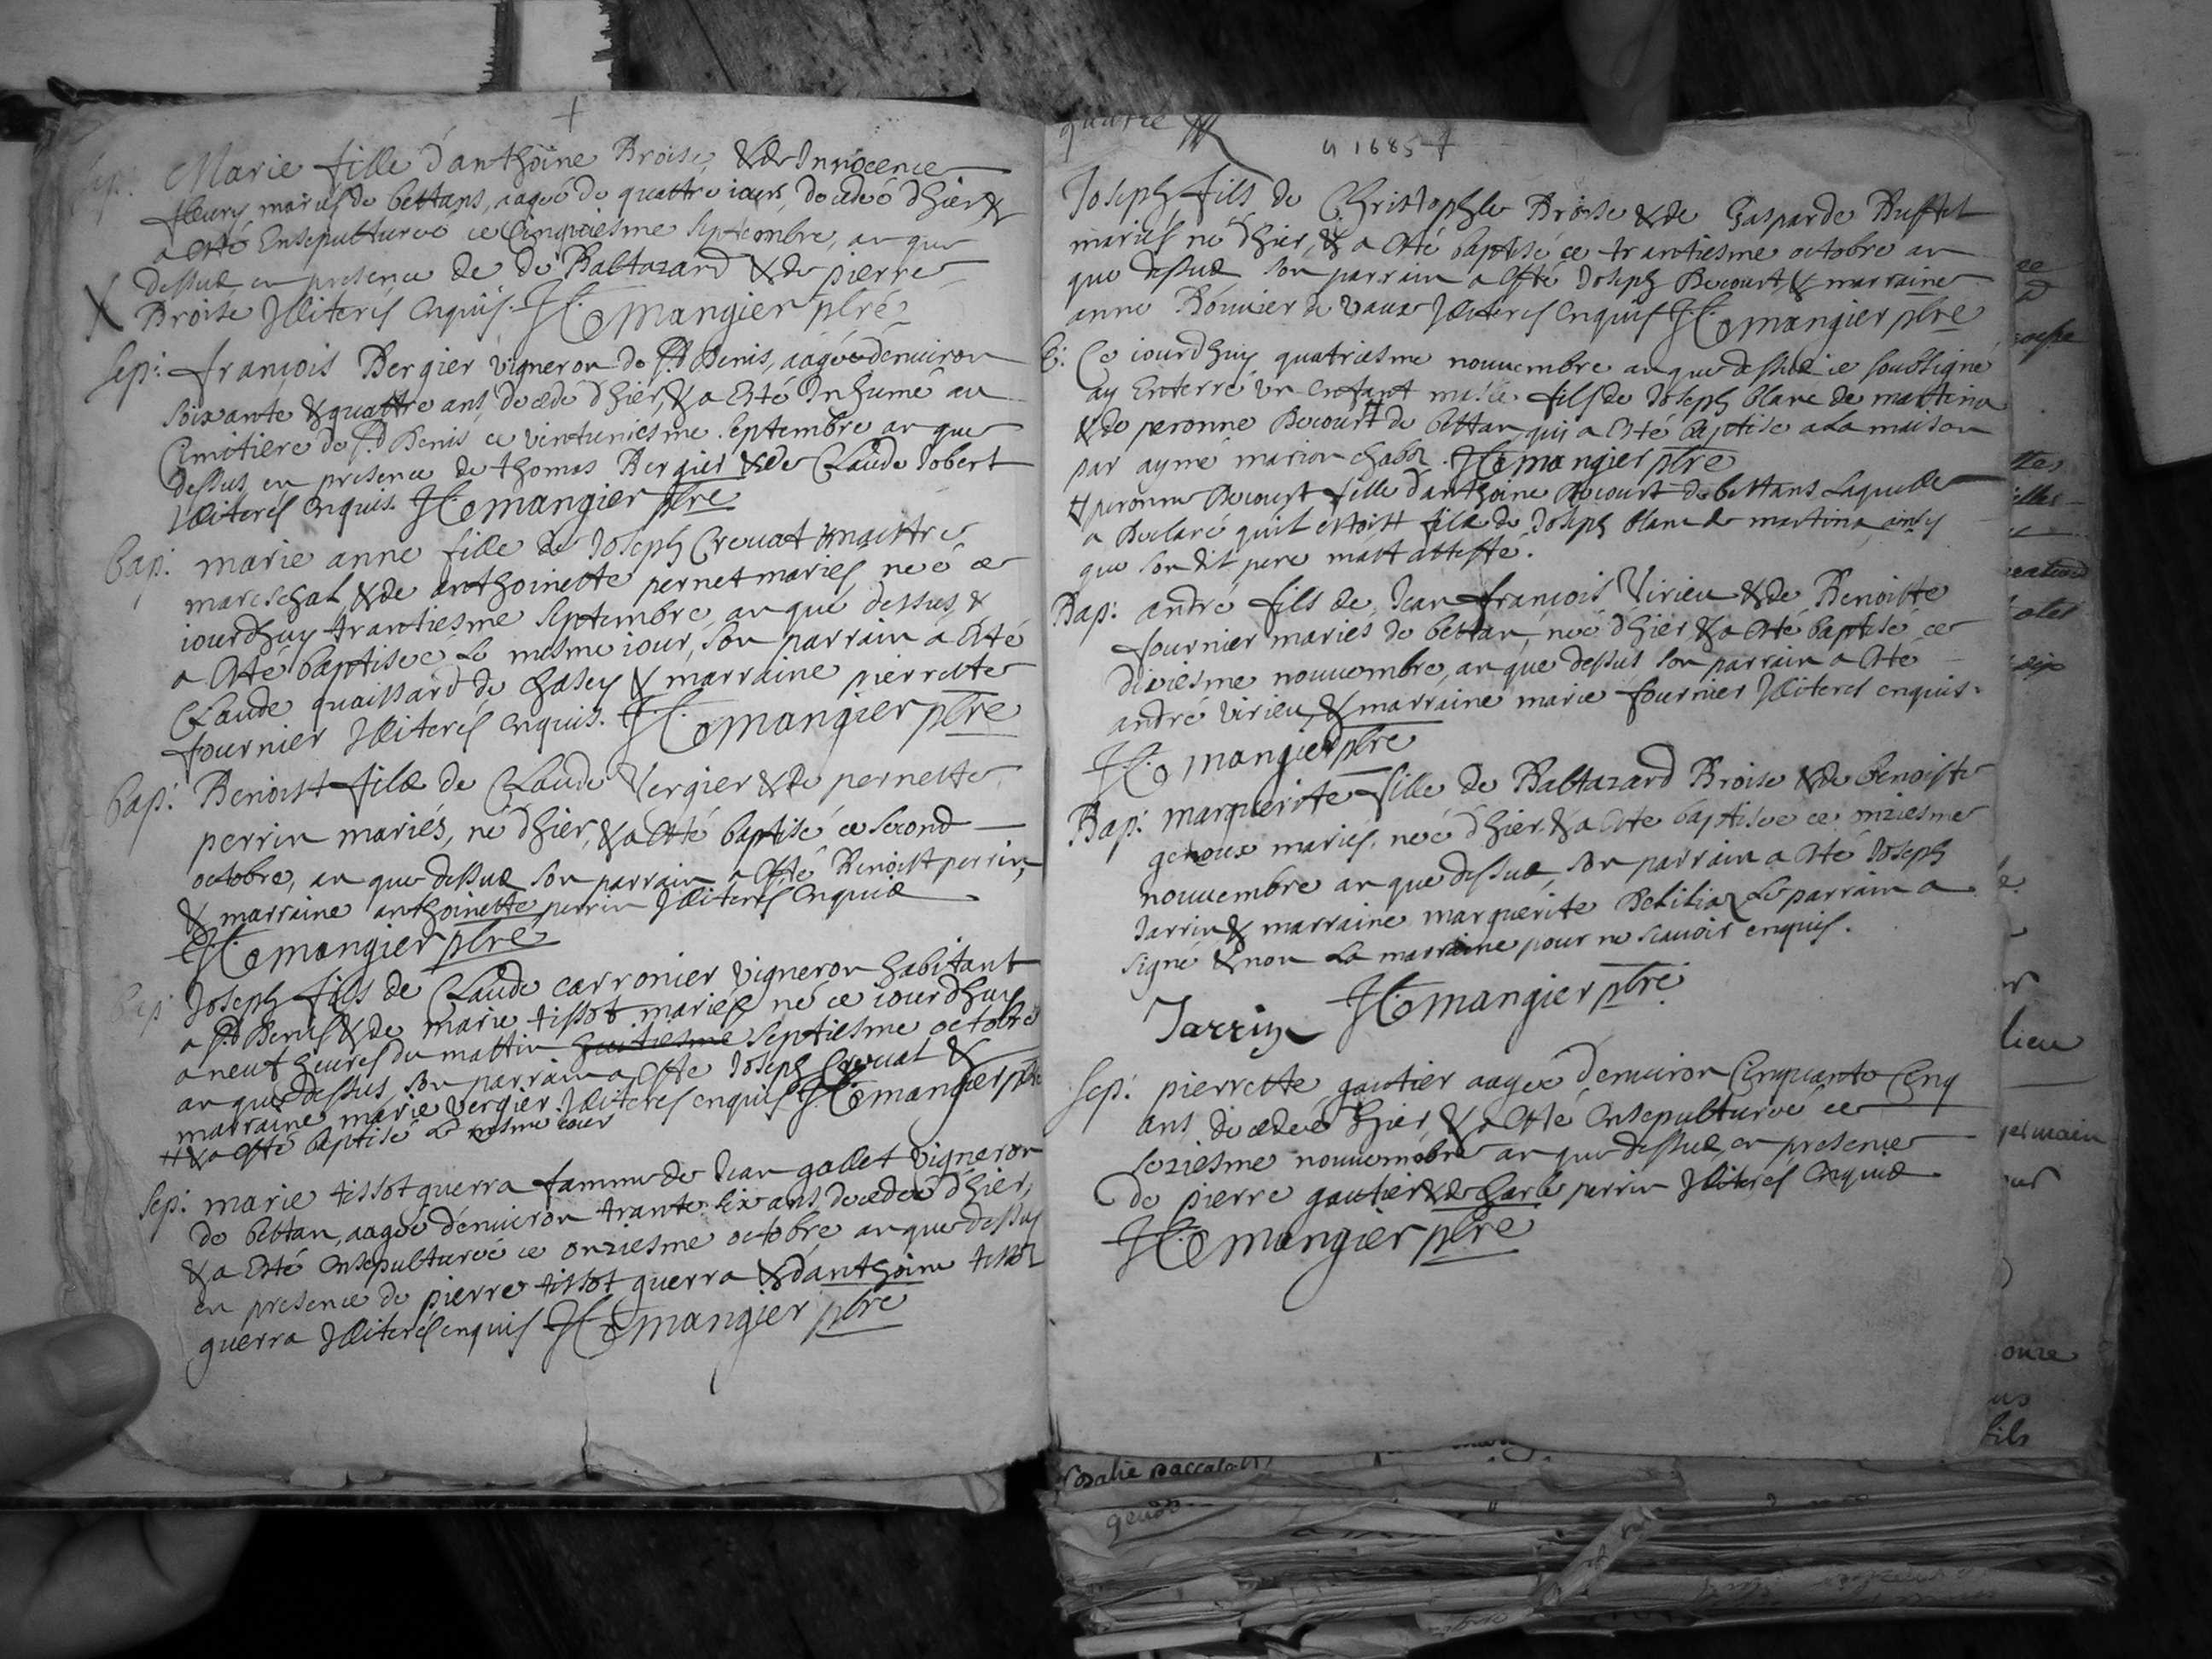 Sep: Marie fille d'anthoine Broise, & de Innocence
fleury mariés de bettans, aageé de quattre iours, decedeé d'hier, &
a esté Ensepultureé ce Cinquiesme septembre, an que
dessus en presence de de Baltazard & de pierre
Broise Illiterés enquis. H Comangier ptre
Sep: françois Bergier vigneron de St Denis, aagé denuiron
soixante & quattre ans, decedé d'hier, & a esté Inhumé au
Cimitiere de St Denis ce vintuniesme septembre an que
dessus, en presence de thomas Bergier & de Claude Jobert
Illiterés enquis. H Comangier ptre
Bap: marie anne fille de Joseph Creuat maittre
mareschal, & de anthoinette pernet mariés, neé ce
iourdhuy trantiesme septembre, an que dessus, &
a esté baptiseé le mesme iour, son parrain a esté
Claude quaissard de chasey & marraine pierrette
fournier Illiterés enquis. H Comangier ptre
Bap: Benoist fils de Claude Vergier & de pernette
perrin mariés, né d'hier, & a esté baptisé ce second
octobre, an que dessus son parrain a esté Benoist perrin,
& marraine anthoinette perrin Illiterés enquis
H Comangier ptre
Bap: Joseph fils de Claude carronier vigneron habitant
a St Denis & de marie tissot mariés né ce iourdhuy
a neuf heures du mattin huitiesme septiesme octobre
an que dessus, son parrain a esté Joseph Creuat &
marraine marie vergier Illiterés enquis H Comangier ptre
H & a esté baptisé le mesme iour
Sep: marie tissot guerra famme de Jean gallet vigneron
de bettan, aageé denuiron trante six ans decedeé d'hier,
& a esté ensepultureé ce onziesme octobre an que dessus
en presence de pierre tissot guerra & danthoine tissot
guerra Illiterés enquis H Comangier ptre
quattre
1685
Joseph fils de Christophle Broise & de Gasparde Buffet
mariés né d'hier, & a esté baptisé ce trantiesme octobre an
que dessus son parrain a esté Joseph Decourt, & marraine
anne Bouuier de vaux Illiterés enquis H Comangier ptre
Ce iourdhuy quatriesme nouuembre an que dessus ie soubsigné
ay Enterré un enfant masle fils de Joseph blanc de martina
& de peronne Decourt de bettan, qui a esté baptisé a la maison
par aymé marion H Comangier ptre
H peronne Decourt fille d'anthoine Decourt de bettans laquelle
a Declaré quil estoit fils de Joseph blanc de martina, ainsy
que son dit pere mast attesté.
Bap: andré fils de Jean françois Virieu & de Benoiste
fournier mariés de bettan, né d'hier & a esté baptisé ce
dixiesme nouuembre, an que dessus son parrain a esté
andré virieu, & marraine marie fournier Illiterés enquis.
H Comangier ptre
Bap: marguerite fille de Baltazard Broise & de Benoiste
genoux mariés, neé d'hier & a esté baptiseé ce onziesme
nouuembre an que dessus, son parrain a esté Joseph
Jarrin & marraine marguerite le parrain a
signé & non la marraine pour ne scauoir enquis.
Jarrin H Comangier ptre
Sep: pierrette gautier aageé denuiron Cinquante Cinq
ans, decedeé d'hier, & a esté ensepultureé ce
seziesme nouuembre an que dessus, en presence
de pierre gautier & de Charle perrin Illiterés enquis
H Comangier ptre
lieu
germain
onze
fils